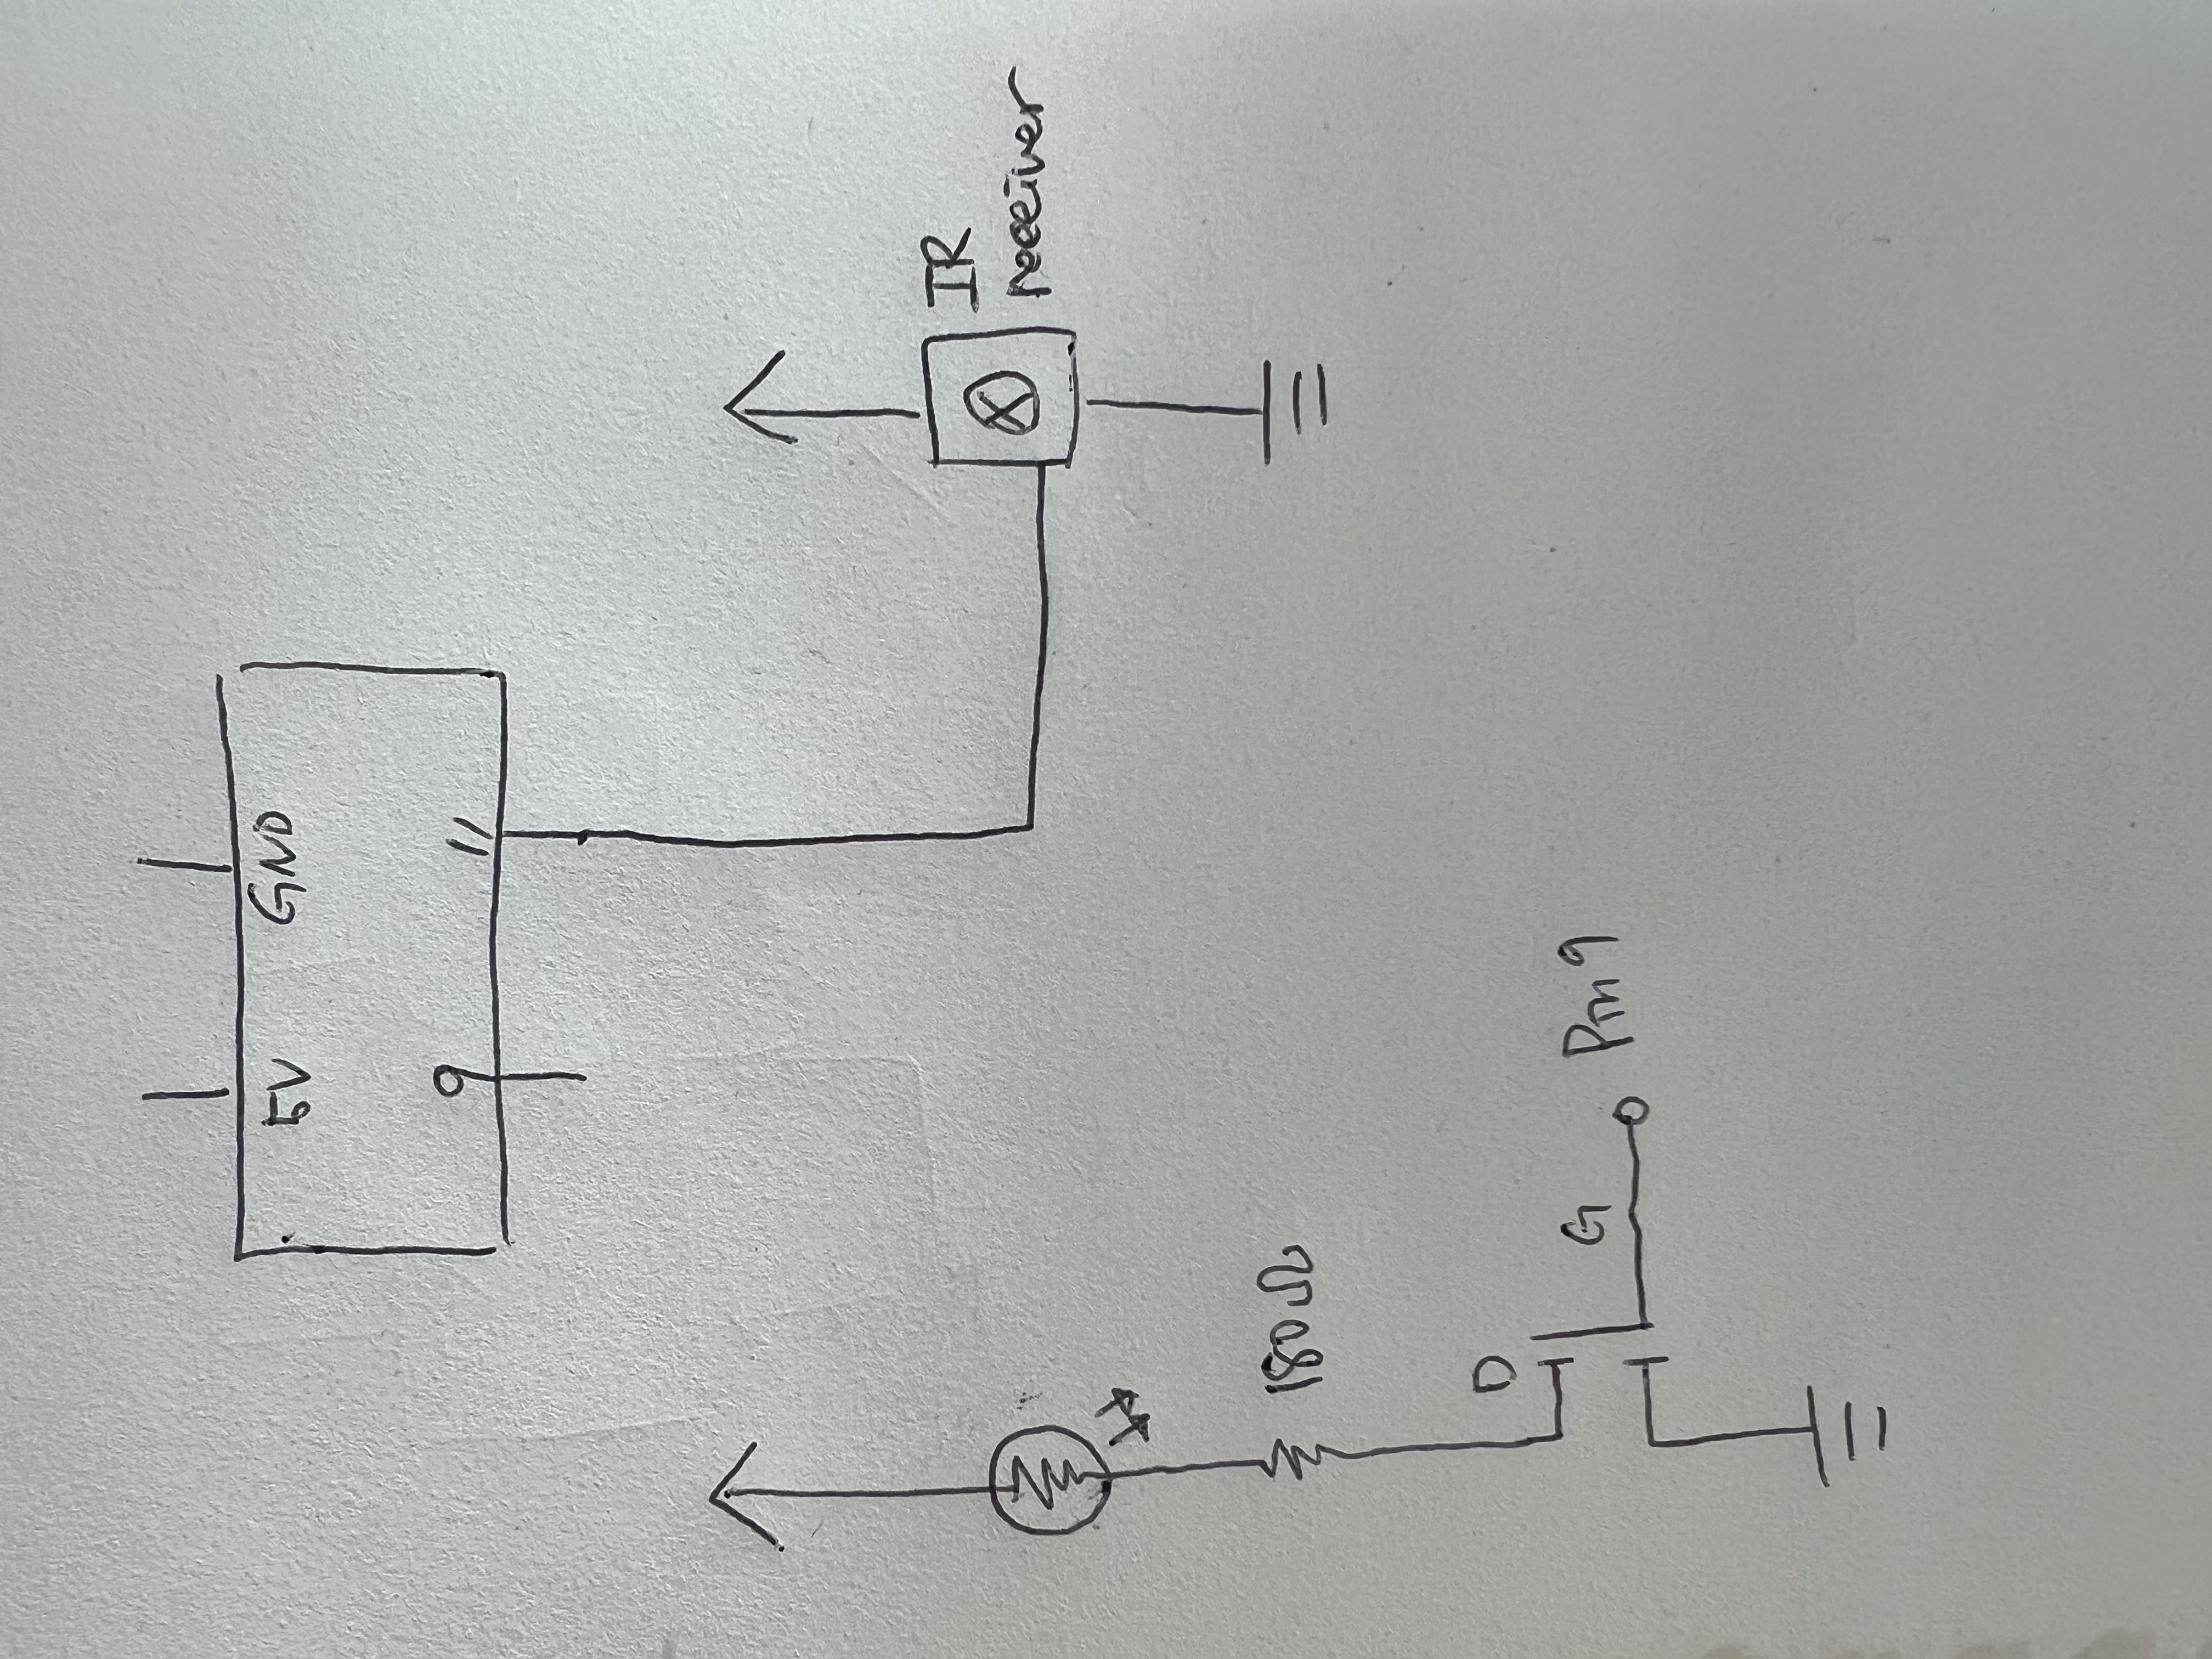 5V GND
9 11
IR
receiver
180Ω
D
G Pin 9